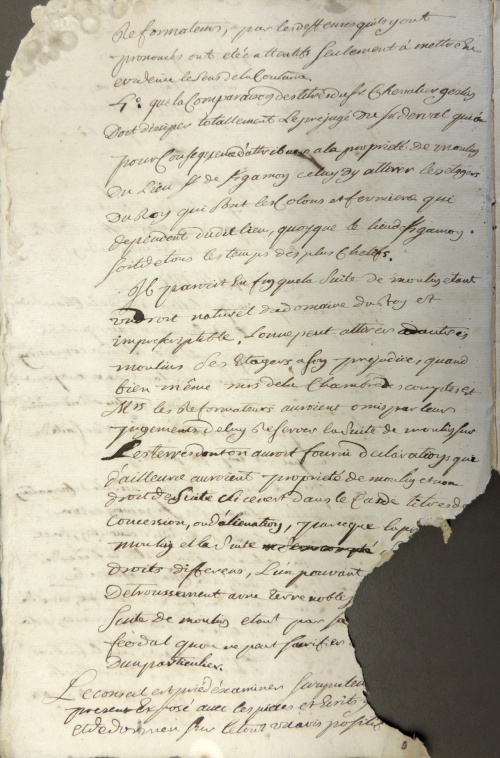 Reformateurs, par les deffenses qu'ils y ont
prononcés ont étés attentifs seulement à mettre En
evidence le sens de la Coutume
4º. que la Comparaison des titres du Sr Chevalier
Doit dissiper totallement Le prejugé Du Sr derval qui a
pour Consequence d'attribuer a la propriété de moulin
Du Lieu Sr de celuy d'y attirer les etagers
Du Roy qui sont les Colons et fermiers qui
dependent dudit lieu, quoyque le lieu de
soit de tous les temps des plus Chetifs.
Il paroist En fin que la Suite de moulin etant
un droit naturel du domaine du Roy et
imprescriptible, L'on ne peut attirer a d'autres
moulins Ses Etagers a son prejudice, quand
bien même mrs de la Chambre des comptes et
Mrs les Reformateurs auroient omis par leurs
jugements de luy Reserver la Suite de moulin sur
Les terres dont on auroit fourni déclarations que
d'ailleurs auroient propriété de moulin et non
droit de Suite si ce n'est dans le Cas de titres de
Concession, ou d'alienation, parce que la
moulin et la Suite
Droits differens, L'un pouvant
Detroussement avec terre noble
Suite de moulin etant par sa
féodal qu'on ne peut sacrifier
D'un particulier.
Le conseil est prié d'examiner
present Exposé avec les pieces et Ecrits
et de donner sur le tout un avis positif